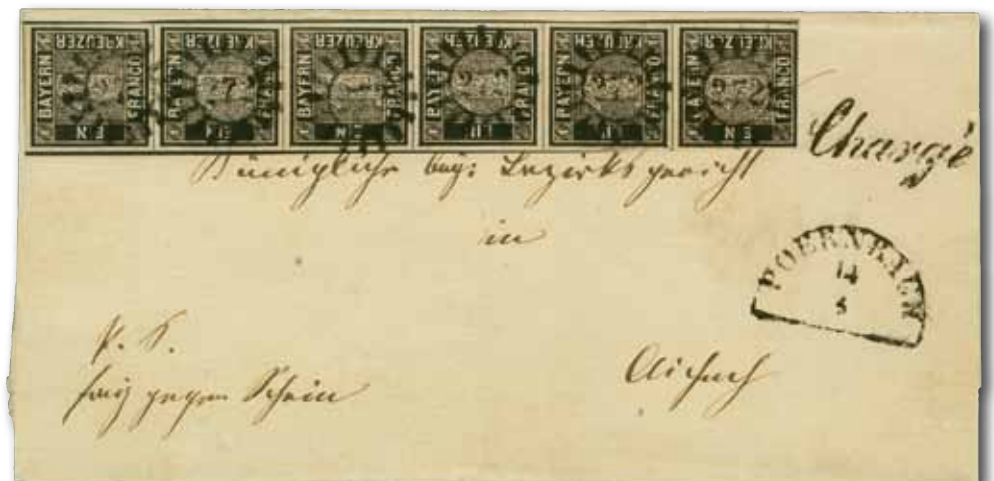 BAYERN KREUZER FRANCO EIN
BAYERN KREUZER FRANCO EIN
BAYERN KREUZER FRANCO EIN
BAYERN KREUZER FRANCO EIN
BAYERN KREUZER FRANCO EIN
BAYERN KREUZER FRANCO EIN
272
Chargé
Königliche bay: Bezirksgericht
in
POERNBACH
14
5
P. S.
frei gegen Schein
Aichach